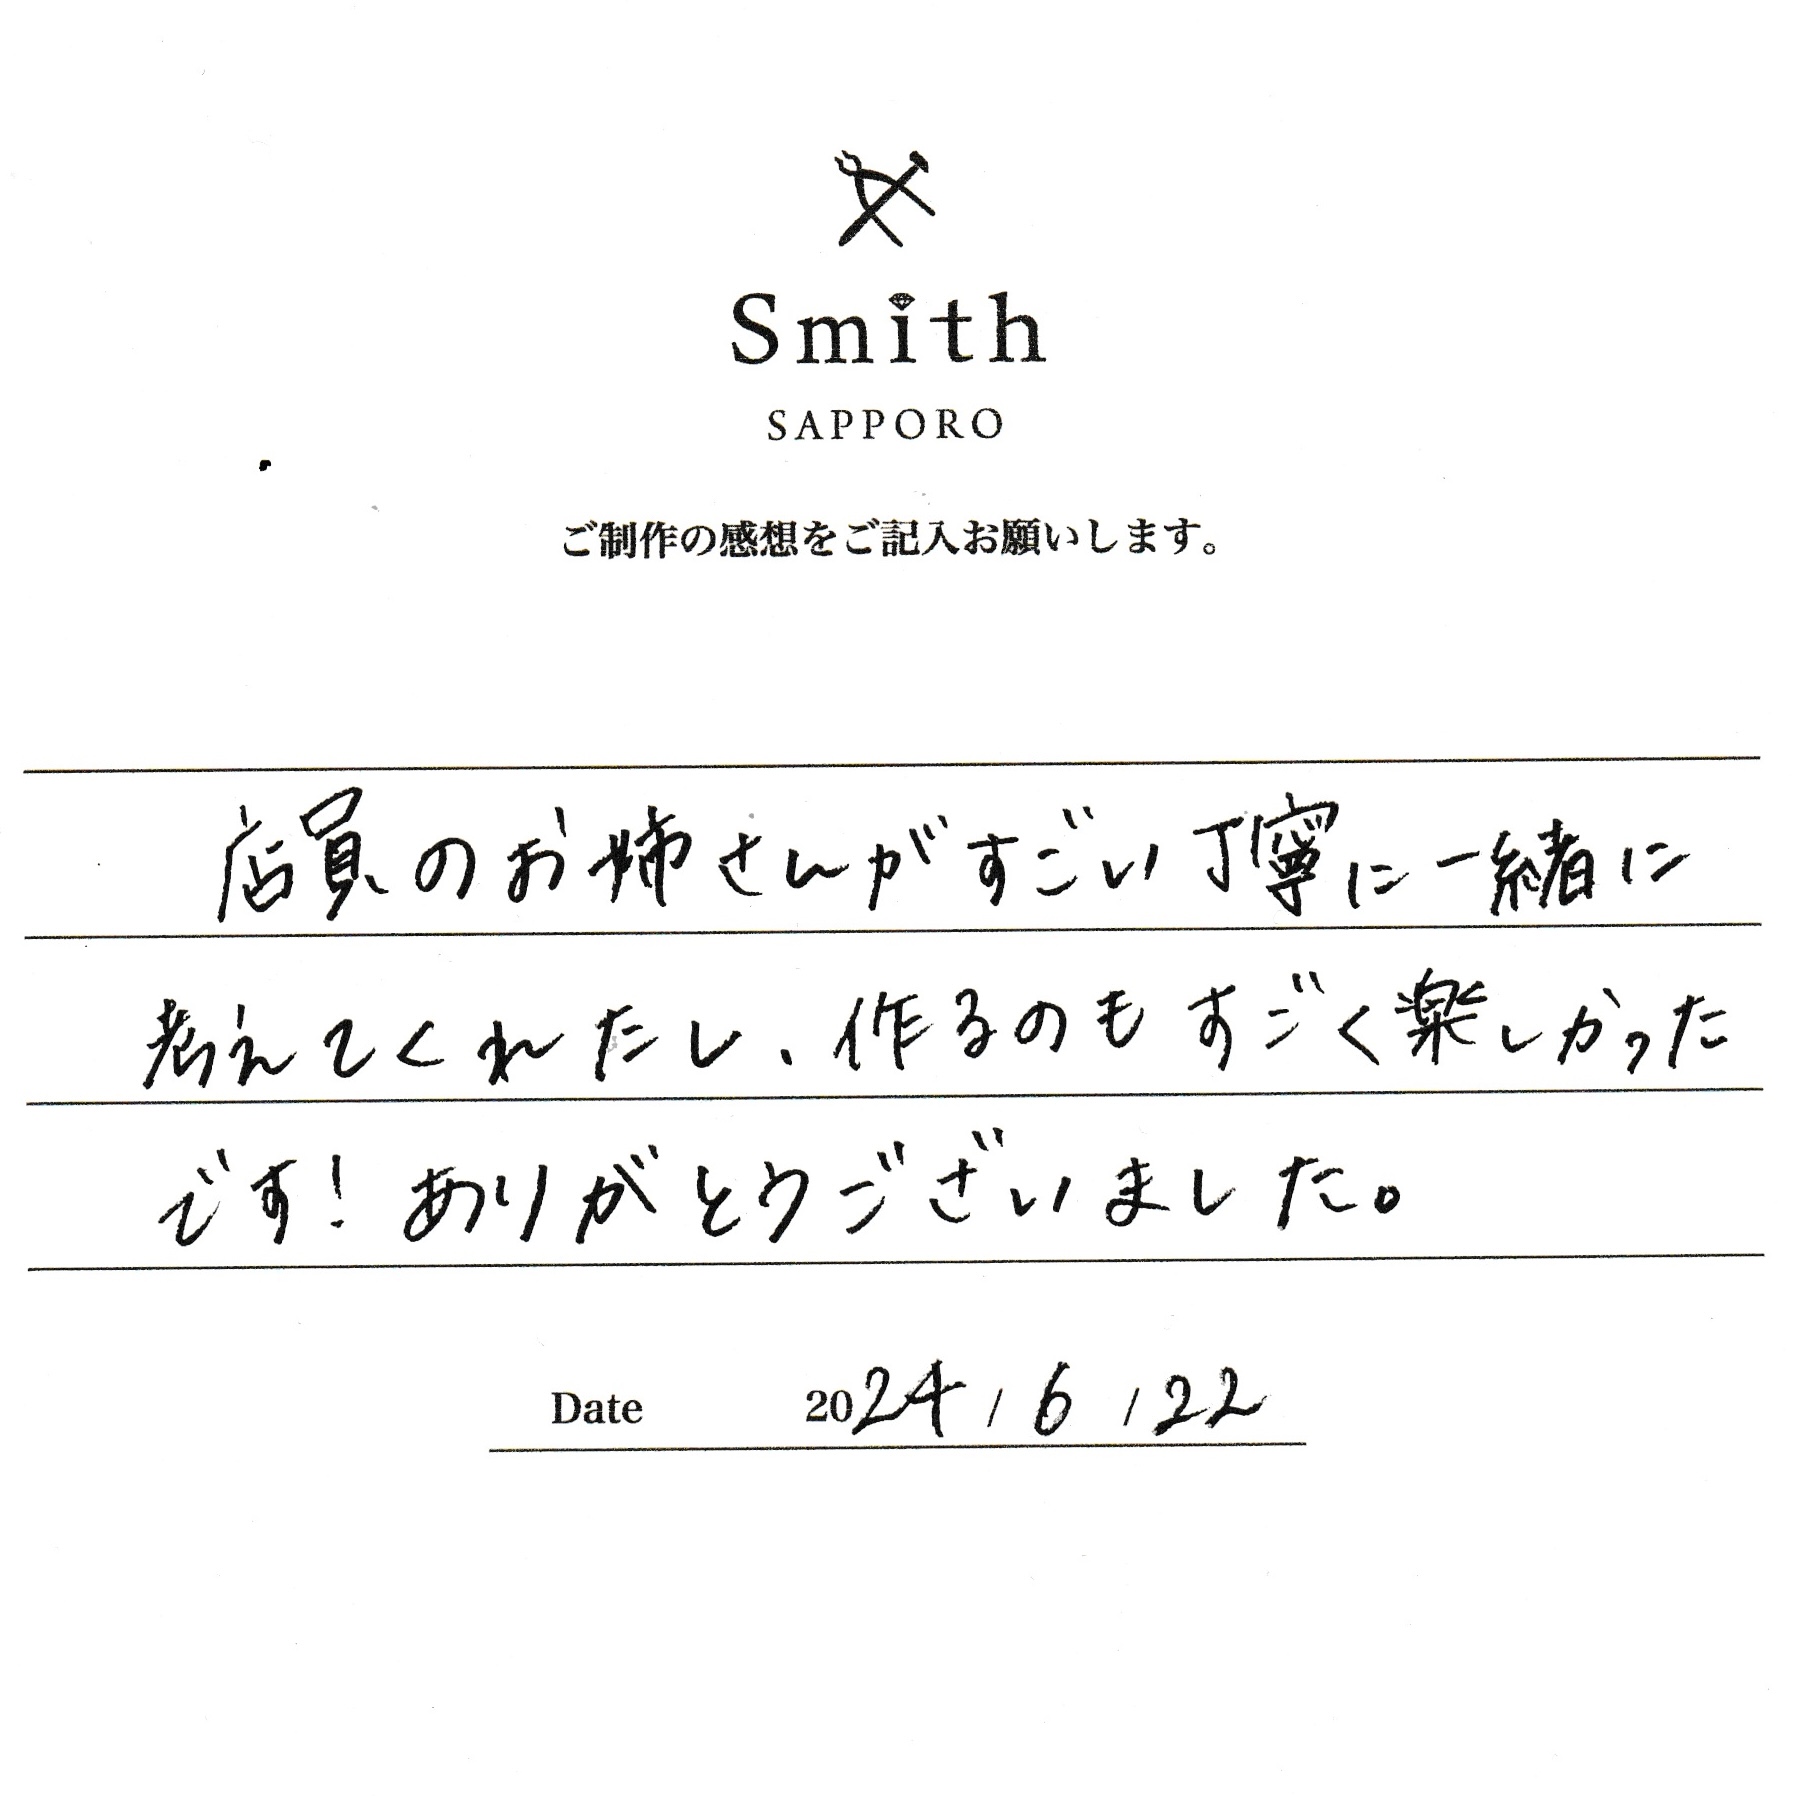 Smith
SAPPORO
ご制作の感想をご記入お願いします。
店員のお姉さんがすごい丁寧に一緒に
考えてくれたし、作るのもすごく楽しかった
です！ありがとうございました。
Date 2024 / 6 / 22